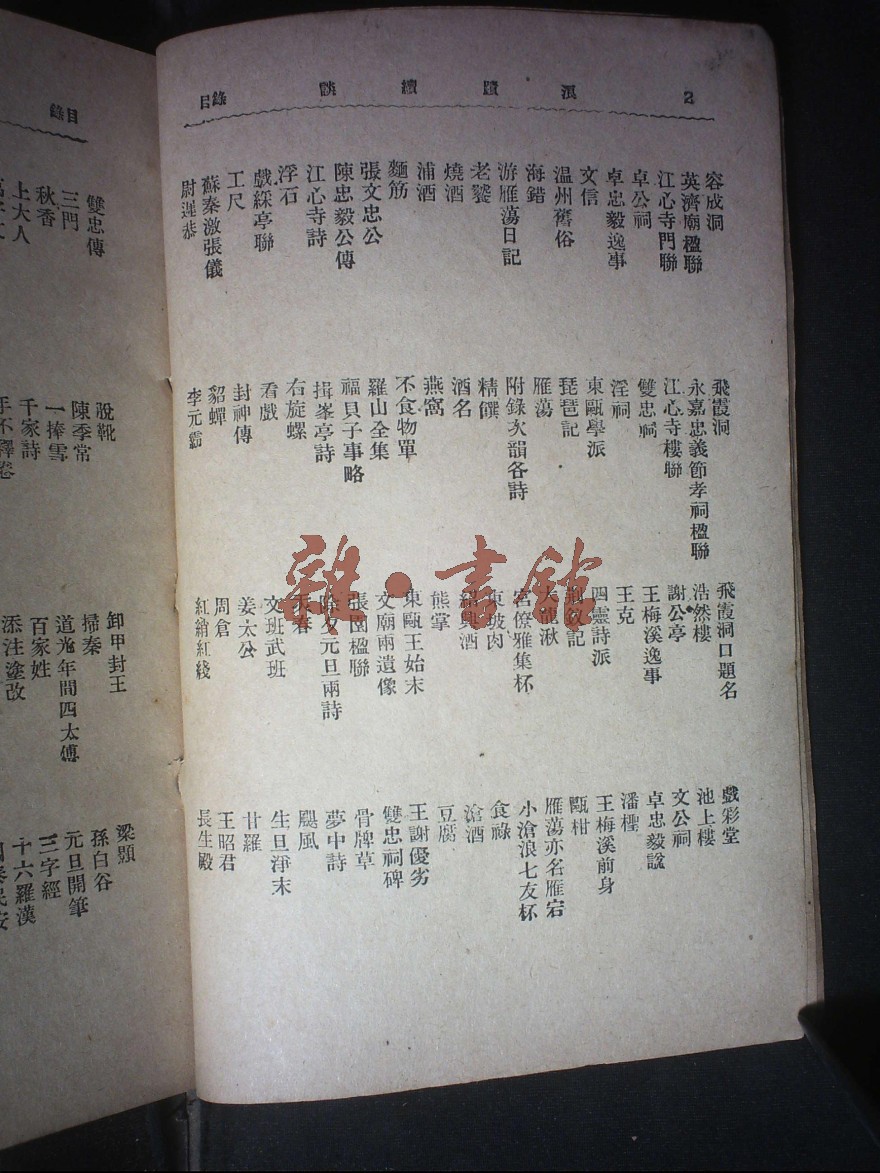 2 浪蹟續談 目錄
容成洞 飛霞洞 飛霞洞口題名 戲彩堂
英濟廟楹聯 永嘉忠義節孝祠楹聯 浩然樓 池上樓
江心寺門聯 江心寺樓聯 謝公亭 文公祠
卓公祠 雙忠祠 王梅溪逸事 卓忠毅諡
卓忠毅逸事 淫祠 王克 潘檉
文信 東甌學派 四靈詩派 王梅溪前身
温州舊俗 琵琶記 荊釵記 甌柑
海錯 雁蕩 大龍湫 雁蕩亦名雁宕
游雁蕩日記 附錄次韻各詩 宮僚雅集杯 小滄浪七友杯
老饕 精饌 東坡肉 食祿
燒酒 酒名 紹興酒 滄酒
浦酒 燕窩 熊掌 豆腐
麵筋 不食物單 東甌王始末 王謝優劣
張文忠公 羅山全集 文廟兩遺像 雙忠祠碑
陳忠毅公傳 福貝子事略 張園楹聯 骨牌草
江心寺詩 揖峯亭詩 除夕元旦兩詩 夢中詩
浮石 右旋螺 春 颶風
戲綵亭聯 看戲 文班武班 生旦淨末
工尺 封神傳 姜太公 甘羅
蘇秦激張儀 貂蟬 周倉 王昭君
尉遲恭 李元霸 紅綃紅綫 長生殿
雜·書館
目錄
雙忠傳 脫靴 卸甲封王 梁顥
三門 陳季常 掃秦 孫白谷
秋香 一捧雪 道光年間四太傅 元旦開筆
上大人 千家詩 百家姓 三字經
手不釋卷 添注塗改 十六羅漢